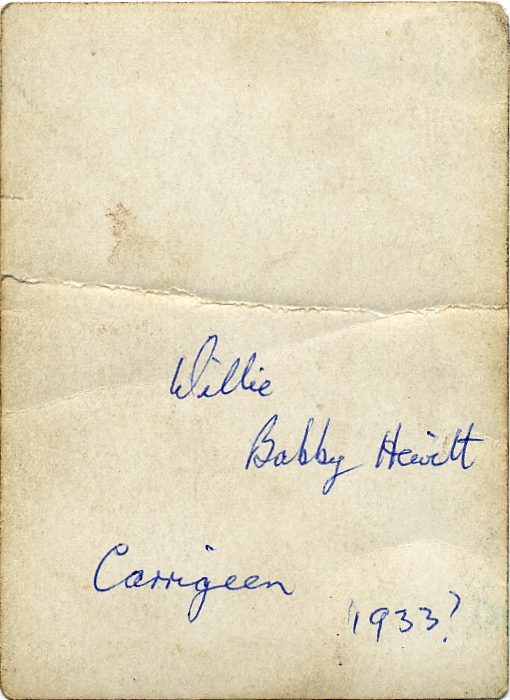 Willie
Bobby Hewitt
Carrigeen
1933?